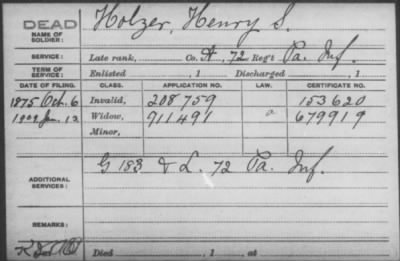 DEAD
NAME OF SOLDIER: Holzer, Henry S.
SERVICE: Late rank, Co. A, 72 Reg't Pa. Inf.
TERM OF SERVICE: Enlisted , 1 Discharged , 1
DATE OF FILING. CLASS. APPLICATION NO. LAW. CERTIFICATE NO.
1875 Oct. 6 Invalid, 208759 153620
Jan. 12 Widow, 911491 a 679919
Minor,
ADDITIONAL SERVICES: G 183 & L. 72 Pa. Inf.
REMARKS:
Died , 1 , at